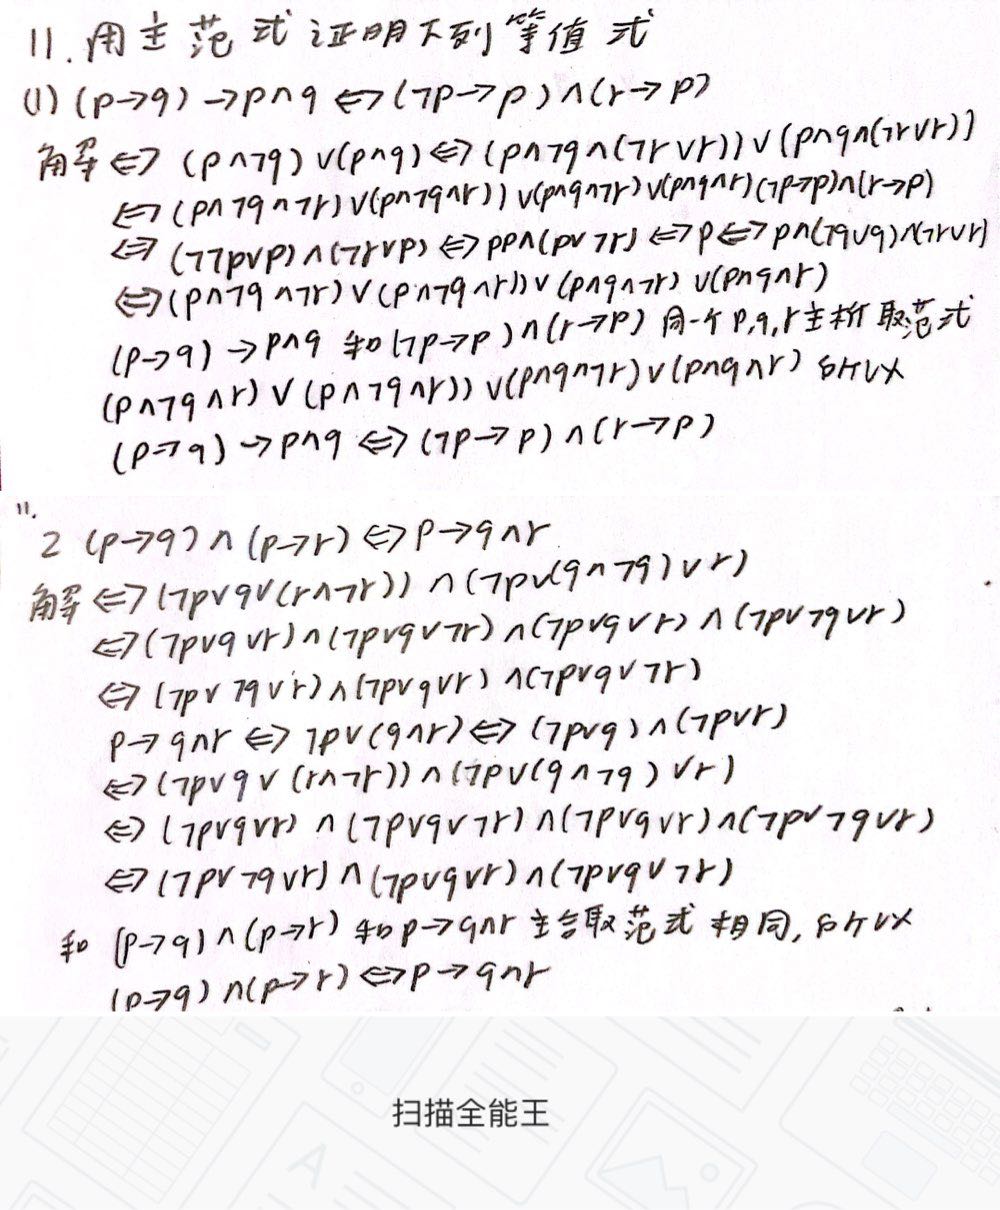 11.用主范式证明下列等值式
(1) (p→q)→p∧q⇔(¬p→p)∧(r→p)
解⇔ (p∧¬q)∨(p∧q)⇔(p∧¬q∧(¬r∨r))∨(p∧q∧(¬r∨r)]
⇔(p∧¬q∧¬r)∨(p∧¬q∧r))∨(p∧q∧¬r)∨(p∧q∧r)(¬p→p)∧(r→p)
⇔(¬¬p∨p)∧(¬r∨p)⇔pp∧(p∨¬r)⇔p⇔p∧(¬q∨q)∧(¬r∨r)
⇔(p∧¬q∧¬r)∨(p∧¬q∧r))∨(p∧q∧¬r)∨(p∧q∧r)
(p→q)→p∧q 和(¬p→p)∧(r→p)同一个p,q,r主析取范式
(p∧¬q∧r)∨(p∧¬q∧r))∨(p∧q∧¬r)∨(p∧q∧r)所以
(p→q)→p∧q⇔(¬p→p)∧(r→p)
11.
2 (p→q)∧(p→r)⇔p→q∧r
解⇔(¬p∨q∨(r∧¬r))∧(¬p∨(q∧¬q)∨r)
⇔(¬p∨q∨r)∧(¬p∨q∨¬r)∧(¬p∨q∨r)∧(¬p∨¬q∨r)
⇔(¬p∨¬q∨r)∧(¬p∨q∨r)∧(¬p∨q∨¬r)
p→q∧r⇔¬p∨(q∧r)⇔(¬p∨q)∧(¬p∨r)
⇔(¬p∨q∨(r∧¬r))∧(¬p∨(q∧¬q)∨r)
⇔(¬p∨q∨r)∧(¬p∨q∨¬r)∧(¬p∨q∨r)∧(¬p∨¬q∨r)
⇔(¬p∨¬q∨r)∧(¬p∨q∨r)∧(¬p∨q∨¬r)
和 (p→q)∧(p→r)和p→q∧r主合取范式相同,所以
(p→q)∧(p→r)⇔p→q∧r
扫描全能王